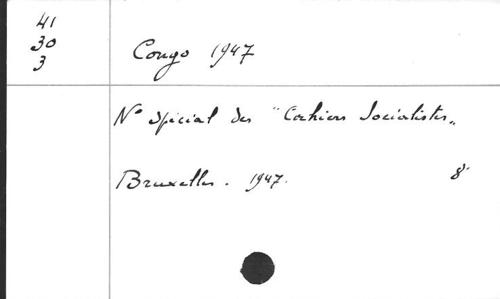 41
30
3
Congo 1947
N° spécial des "Cahiers Socialistes„
Bruxelles. 1947. 8°